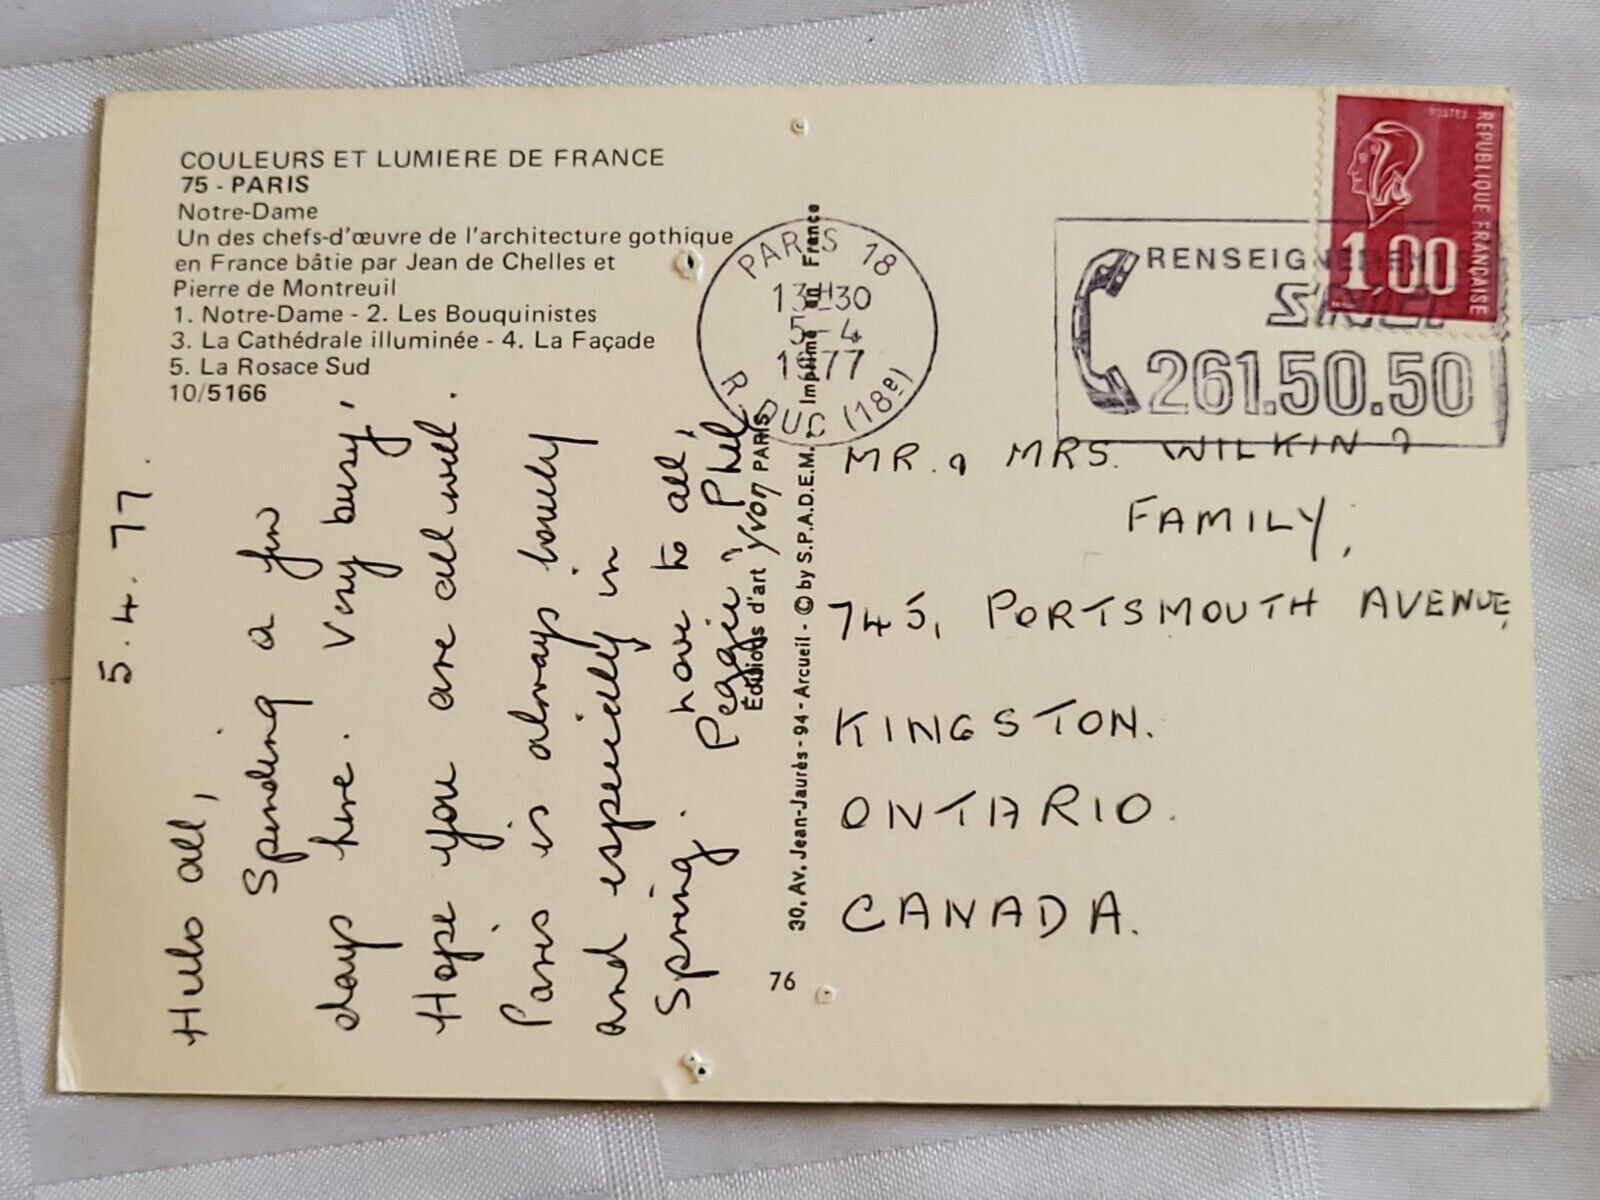 COULEURS ET LUMIERE DE FRANCE
75 - PARIS
Notre-Dame
Un des chefs-d'œuvre de l'architecture gothique
en France bâtie par Jean de Chelles et
Pierre de Montreuil
1. Notre-Dame - 2. Les Bouquinistes
3. La Cathédrale illuminée - 4. La Façade
5. La Rosace Sud
10/5166
5.4.77.
Hello all,
Spending a few
days here. Very busy,
Hope you are all well.
Paris is always lovely
and especially in
Spring. love to all,
Peggie & Phil
Éditions d'art Yvon PARIS
30, Av. Jean-Jaurès - 94 - Arcueil - © by S.P.A.D.E.M. - Imprimé en France
76
PARIS 18
13H30
5-4
1977
R. DUC (18e)
RENSEIGNEMENTS
SNCF
261.50.50
POSTES
REPUBLIQUE FRANÇAISE
1,00
MR. & MRS. WILKIN &
FAMILY,
745, PORTSMOUTH AVENUE,
KINGSTON.
ONTARIO.
CANADA.